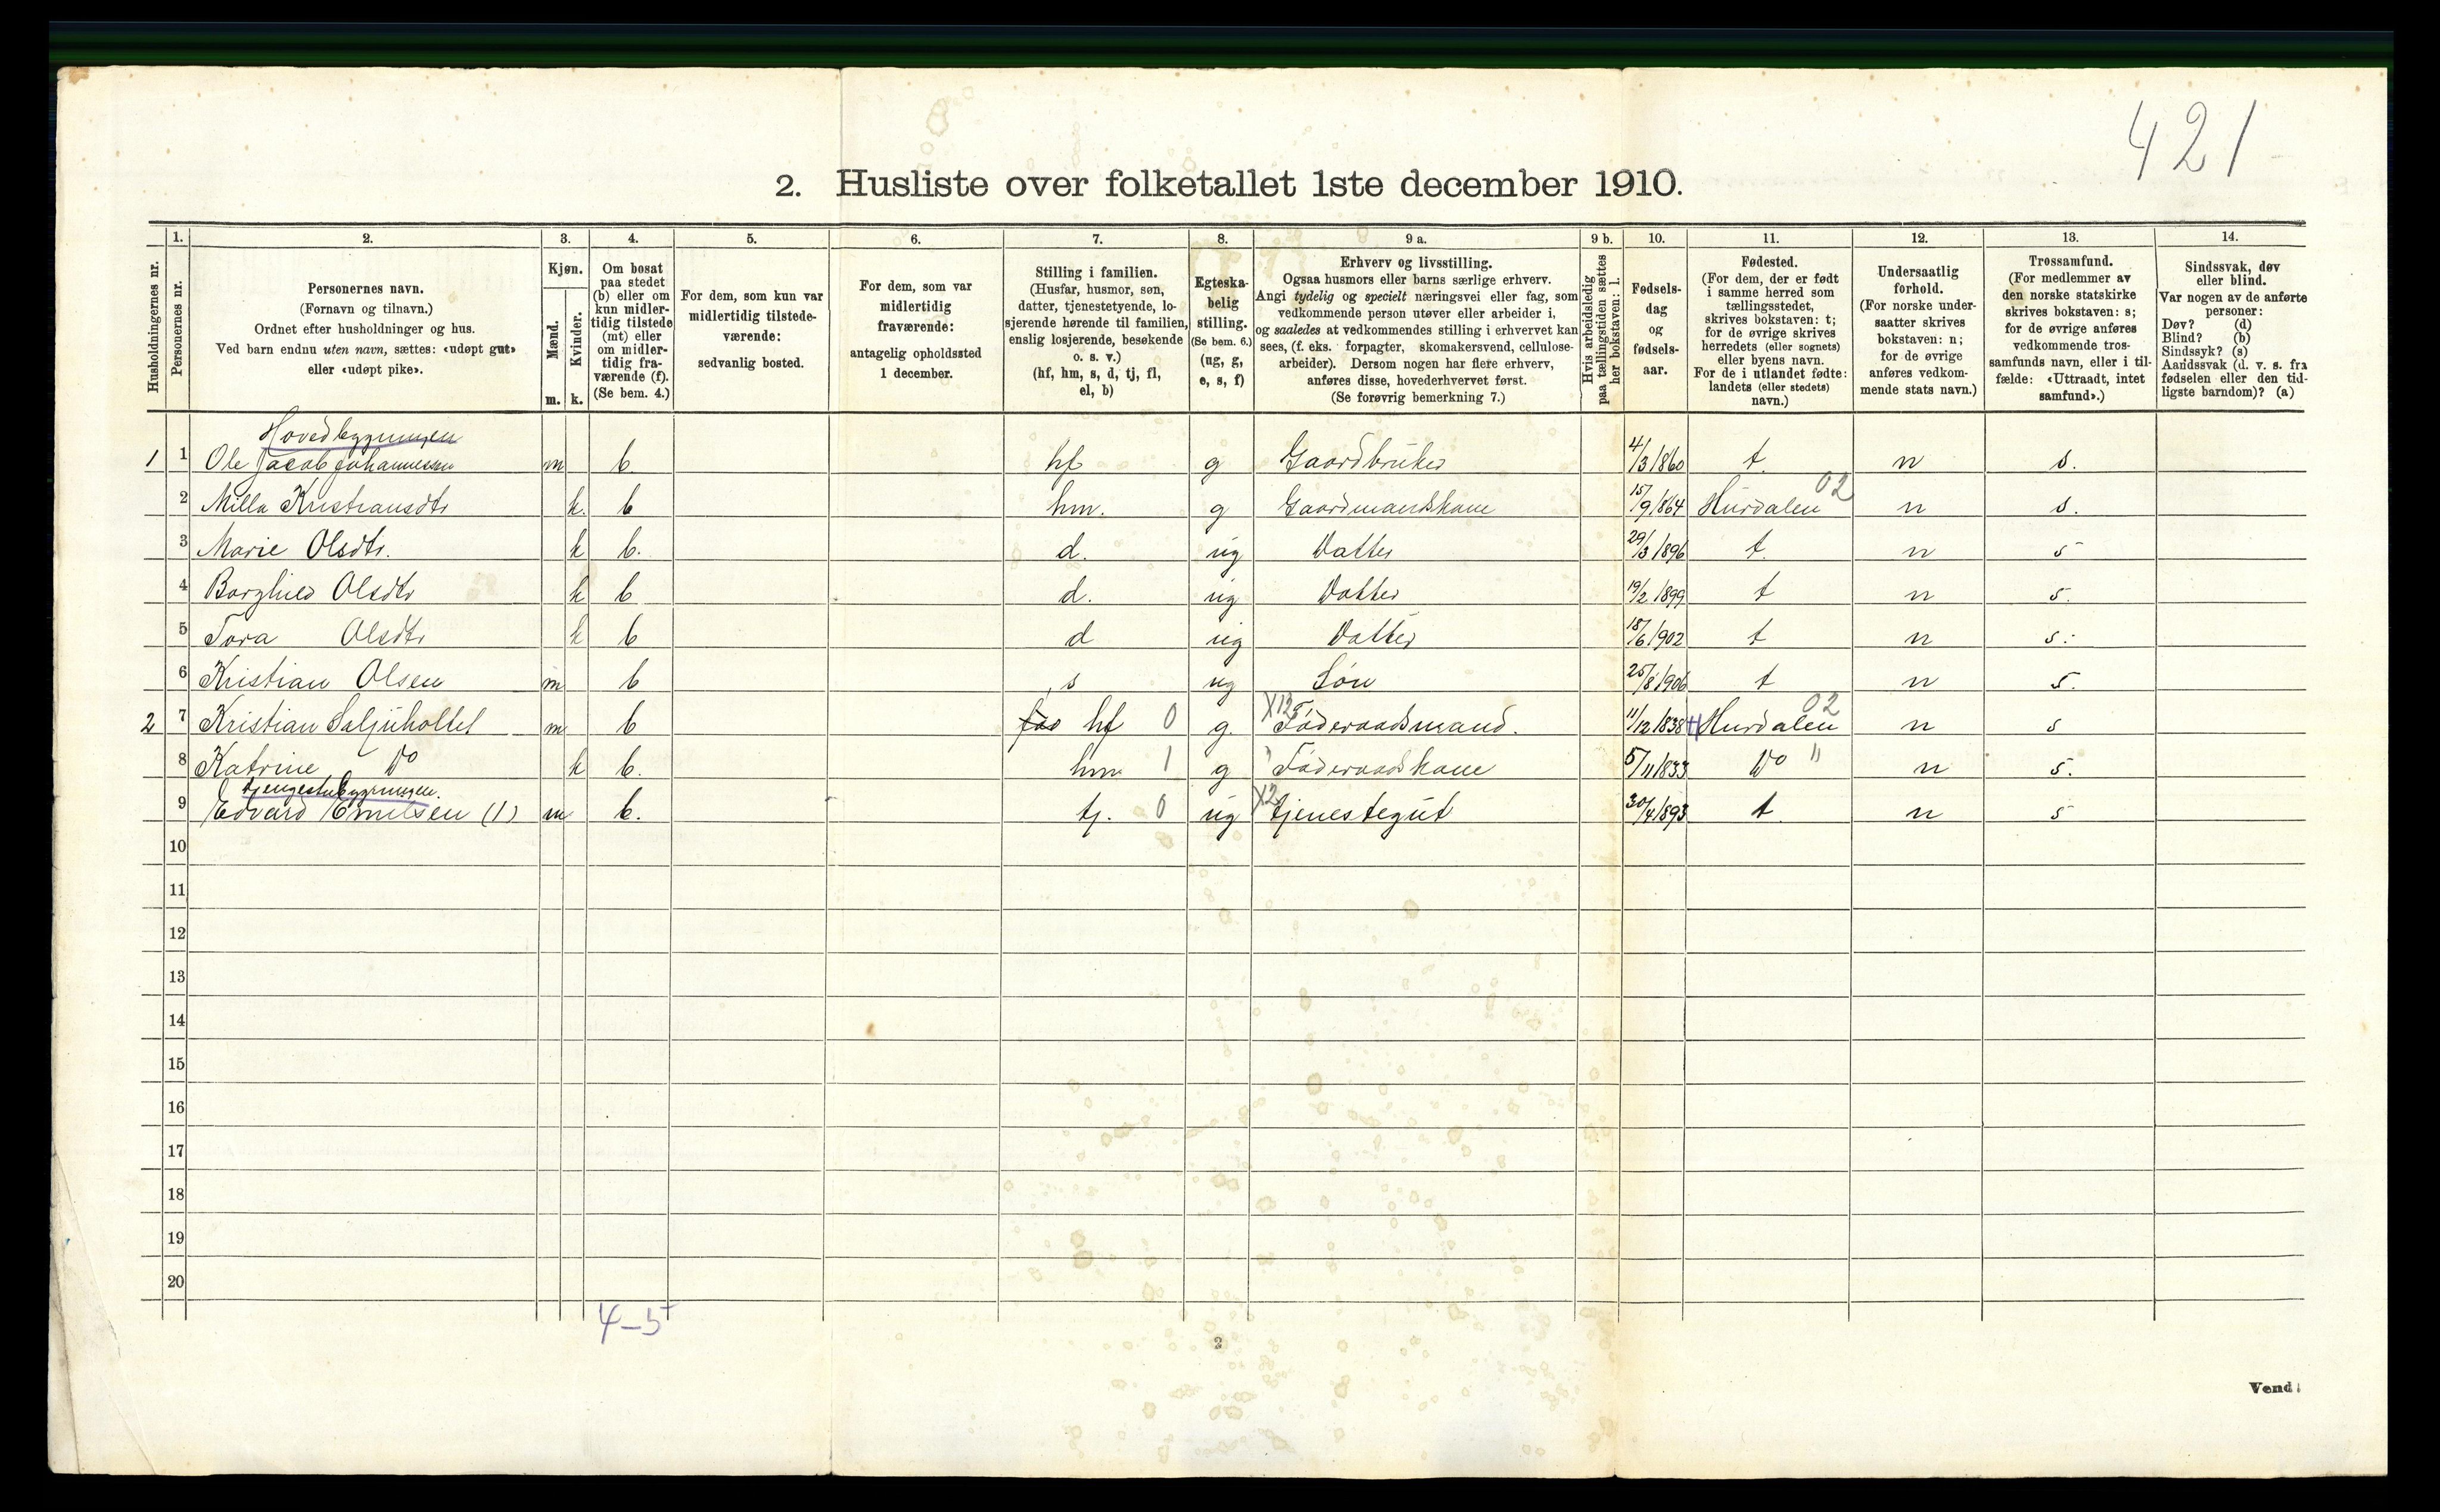 421
2. Husliste over folketallet 1ste december 1910.
1. 2. 3. 4. 5. 6. 7. 8. 9 a. 9 b. 10. 11. 12. 13. 14.
Husholdningernes nr.
Personernes nr.
Personernes navn.
(Fornavn og tilnavn.)
Ordnet efter husholdninger og hus.
Ved barn endnu uten navn, sættes: «udøpt gut»
eller «udøpt pike».
Kjøn.
Mænd.
Kvinder.
m. k.
Om bosat
paa stedet
(b) eller om
kun midler-
tidig tilstede
(mt) eller
om midler-
tidig fra-
værende (f).
(Se bem. 4.)
For dem, som kun var
midlertidig tilstede-
værende:
sedvanlig bosted.
For dem, som var
midlertidig
fraværende:
antagelig opholdssted
1 december.
Stilling i familien.
(Husfar, husmor, søn,
datter, tjenestetyende, lo-
sjerende hørende til familien,
enslig losjerende, besøkende
o. s. v.)
(hf, hm, s, d, tj, fl,
el, b)
Egteska-
belig
stilling.
(Se bem. 6.)
(ug, g,
e, s, f)
Erhverv og livsstilling.
Ogsaa husmors eller barns særlige erhverv.
Angi tydelig og specielt næringsvei eller fag, som
vedkommende person utøver eller arbeider i,
og saaledes at vedkommendes stilling i erhvervet kan
sees, (f. eks. forpagter, skomakersvend, cellulose-
arbeider). Dersom nogen har flere erhverv,
anføres disse, hovederhvervet først.
(Se forøvrig bemerkning 7.)
Hvis arbeidsledig
paa tællingstiden sættes
her bokstaven: l.
Fødsels-
dag
og
fødsels-
aar.
Fødested.
(For dem, der er født
i samme herred som
tællingsstedet,
skrives bokstaven: t;
for de øvrige skrives
herredets (eller sognets)
eller byens navn.
For de i utlandet fødte:
landets (eller stedets)
navn.)
Undersaatlig
forhold.
(For norske under-
saatter skrives
bokstaven: n;
for de øvrige
anføres vedkom-
mende stats navn.)
Trossamfund.
(For medlemmer av
den norske statskirke
skrives bokstaven: s;
for de øvrige anføres
vedkommende tros-
samfunds navn, eller i til-
fælde: «Uttraadt, intet
samfund».)
Sindssvak, døv
eller blind.
Var nogen av de anførte
personer:
Døv? (d)
Blind? (b)
Sindssyk? (s)
Aandssvak (d. v. s. fra
fødselen eller den tid-
ligste barndom)? (a)
Hovedbygningen
1 1 Ole Jacob Johannessen m b hf g Gaardbruker 4/3 1860 t. n s.
2 Milla Kristiansdtr k. b hm. g Gaardmandskone 15/9 1864 Hurdalen 02 n s.
3 Marie Olsdtr. k b. d. ug Datter 29/3 1896 t. n s
4 Borghild Olsdtr k b d. ug Datter 19/2 1899 t n s.
5 Tora Olsdtr k b d ug Datter 18/6 1902 t n s.
6 Kristian Olsen m b s ug Søn 25/8 1906 t n s.
2 7 Kristian Saljuholtet m b hf 0 g. X12 Føderaadsmand. 11/12 1838 Hurdalen 02 n s
8 Katrine Do k b. hm 1 g Føderaadskone 5/11 1833 Do " n s.
9 Edvard Emilsen (1) m b. tj. 0 ug X2 tjenestegut 30/4 1893 t. n s
10
11
12
13
14
15
16
17
18
19
20
4-5
2
Vend!